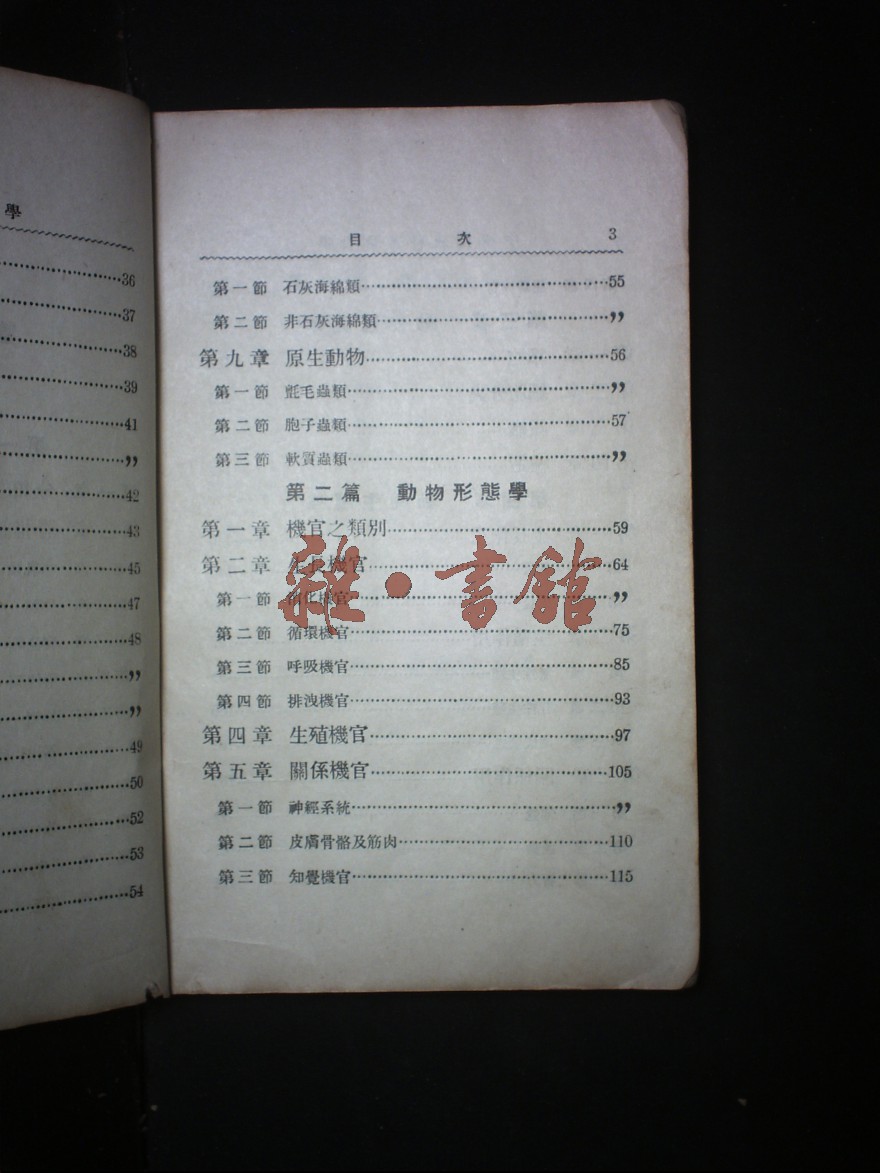 學
36
37
38
39
41
”
42
43
45
47
48
”
”
49
50
52
53
54
目 次 3
第一節 石灰海綿類 55
第二節 非石灰海綿類 ”
第九章 原生動物 56
第一節 氈毛蟲類 ”
第二節 胞子蟲類 57
第三節 軟質蟲類 ”
第二篇 動物形態學
第一章 機官之類別 59
第二章 生長機官 64
第一節 消化機官 ”
第二節 循環機官 75
第三節 呼吸機官 85
第四節 排洩機官 93
第四章 生殖機官 97
第五章 關係機官 105
第一節 神經系統 ”
第二節 皮膚骨骼及筋肉 110
第三節 知覺機官 115
雜·書館